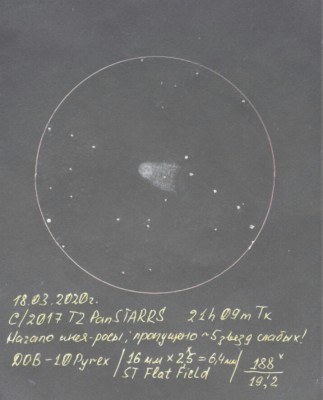 18.03.2020г.
C/2017 T2 PanSTARRS 21h 09m Tк
Начало инея-росы; пропущено ~5 звёзд слабых!
DOB-10 Pyrex / 16 мм × 2,5 = 6,4 мм / 188ˣ
ST Flat Field 19,'2